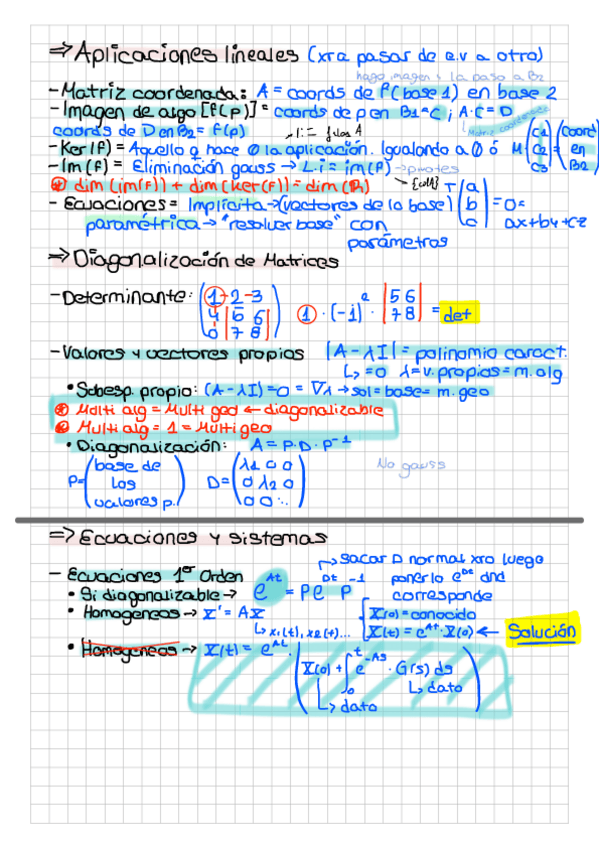 ⇒ Aplicaciones lineales (xra pasar de e.v a otro)
hago imagen y la paso a B2
- Matriz coordenada: A = coords de f(base 1) en base 2
- Imagen de algo [f(p)] = coords de p en B1 = C ; A·C = D
coords de D en B2 = f(p)
Matriz coordenada
- Ker(f) = Aquello q hace 0 la aplicación. Igualando a 0 ó M·(C1 C2 C3) (coord en B2)
- Im(f) = Eliminación gauss → L.i = im(f) → pivotes
* dim(im(f)) + dim(ker(f)) = dim
- Ecuaciones = Implícita → (vectores de la base) (a b c) = 0 = ax+by+cz
paramétrica → "resolver base" con
parámetros
⇒ Diagonalización de Matrices
- Determinante: (1 -2 -3 4 6 6 0 7 8) 1 · (-1)² · |5 6 7 8| = det
- Valores y vectores propios |A - λI| = polinomio caract.
↳ = 0 λ = v. propios = m. alg
• Subesp. propio: (A - λI) = 0 = Vλ → sol = base = m. geo
* Multi alg = Multi geo ← diagonalizable
* Multi alg = 1 = Multi geo
• Diagonalización: A = P·D·P⁻¹
P = (base de los valores p.) D = (λ1 0 0 0 λ2 0 0 0 ⋱) No gauss
⇒ Ecuaciones y sistemas
→ Sacar D normal xra luego
- Ecuaciones 1er Orden
poner lo e^Dt dnd
• Si diagonalizable → e^At = P e^Dt P⁻¹ corresponde
• Homogeneos → X' = AX X(0) = conocido
↳ x1(t), x2(t)... X(t) = e^At · X(0) ← Solución
• Homogeneos → X(t) = e^At · (X(0) + ∫₀ᵗ e^-As · G(s) ds)
↳ dato
↳ dato